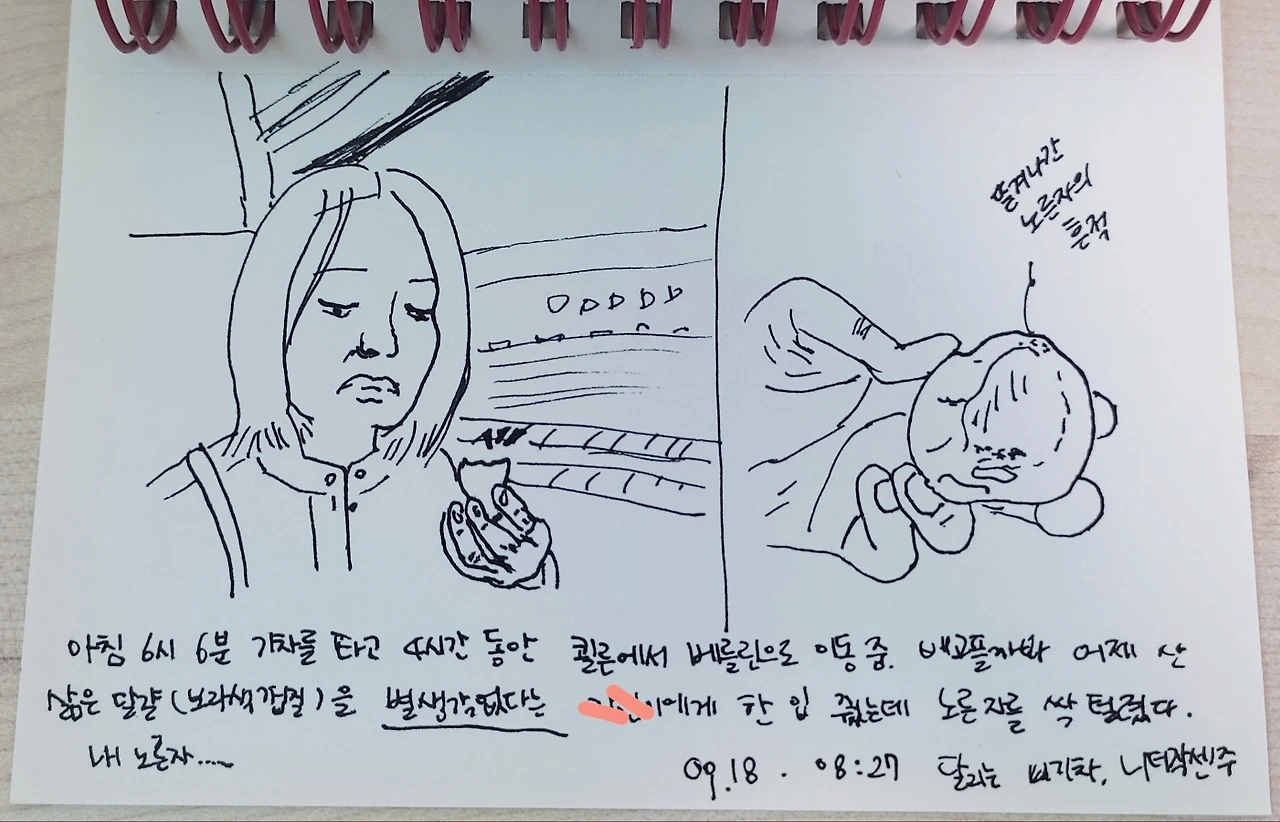 뜯겨나간
노른자의
흔적
아침 6시 6분 기차를 타고 4시간 동안 쾰른에서 베를린으로 이동 중. 배고플까봐 어제 산
삶은 달걀(보라색껍질)을 별생각없다는 에게 한 입 줬는데 노른자를 싹 털렸다.
내 노른자.....
09.18. 08:27 달리는 기차, 니더작센주